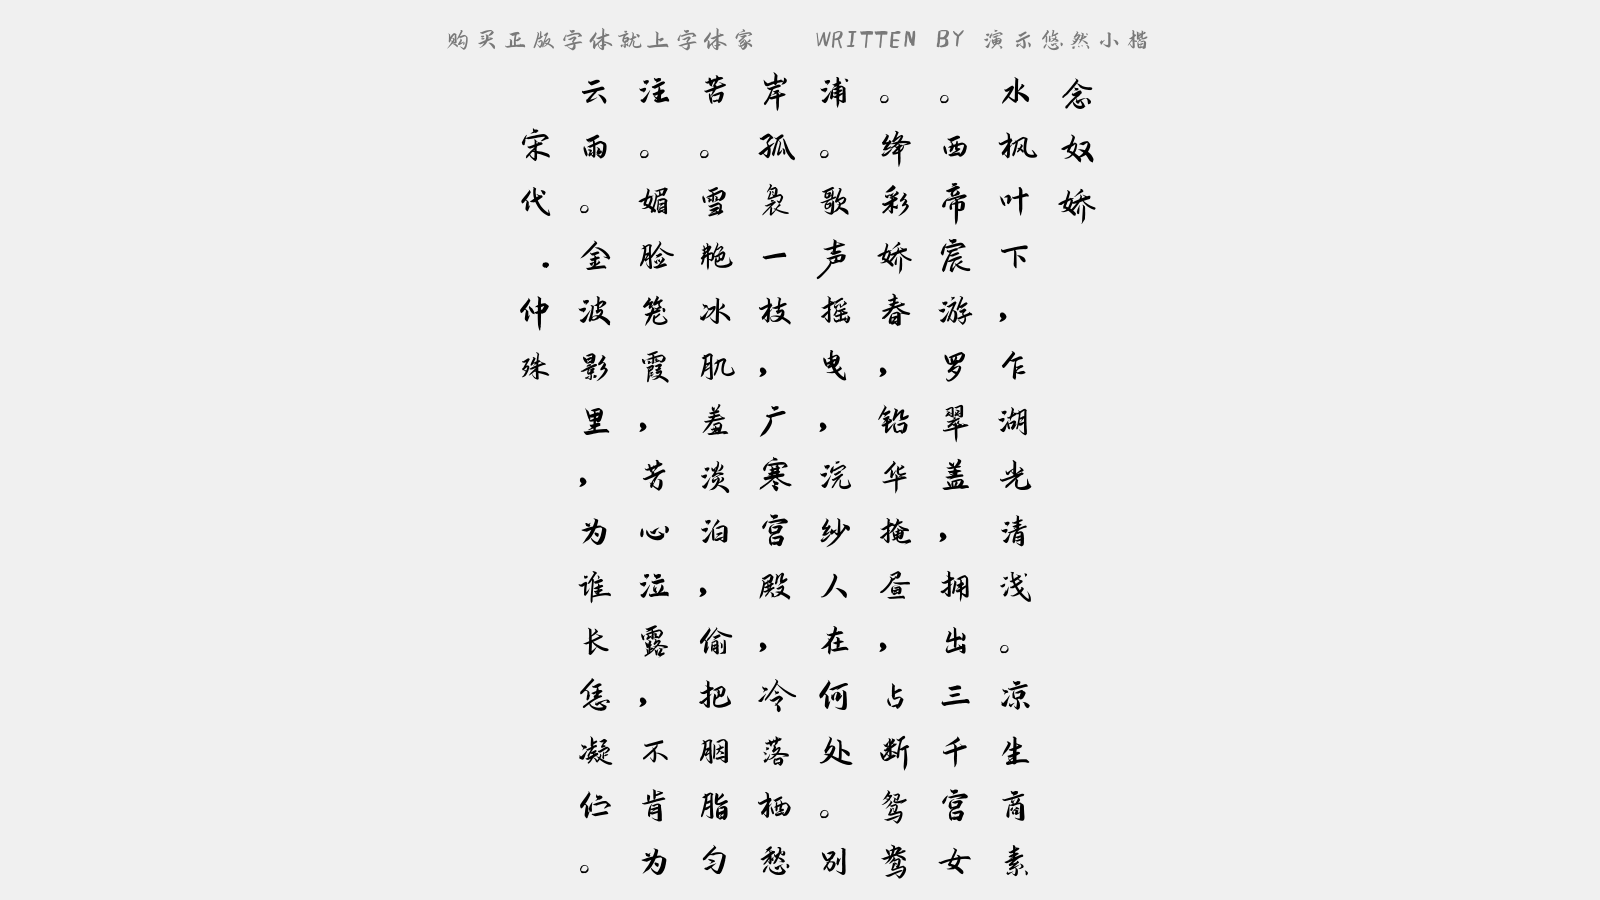 购买正版字体就上字体家 WRITTEN BY 演示悠然小楷
念奴娇
水枫叶下，乍湖光清浅。凉生商素
。西帝宸游罗翠盖，拥出三千宫女
。绛彩娇春，铅华掩昼，占断鸳鸯
浦。歌声摇曳，浣纱人在何处。别
岸孤袅一枝，广寒宫殿，冷落栖愁
苦。雪艳冰肌羞淡泊，偷把胭脂匀
注。媚脸笼霞，芳心泣露，不肯为
云雨。金波影里，为谁长恁凝伫。
宋代.仲殊